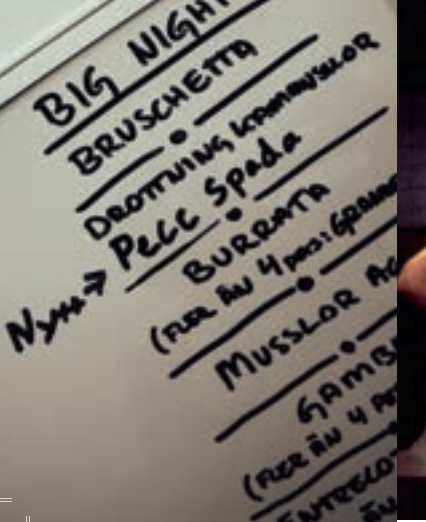 BIG NIGHT
BRUSCHETTA
DROTTNING KAMMUSSLOR
Nytt → PeCC Spada
BURRATA
(FLER ÄN 4 pers: GRANA
MUSSLOR AG
GAMBE
(FLER ÄN 4 PE
ENTRECOT
ÄN